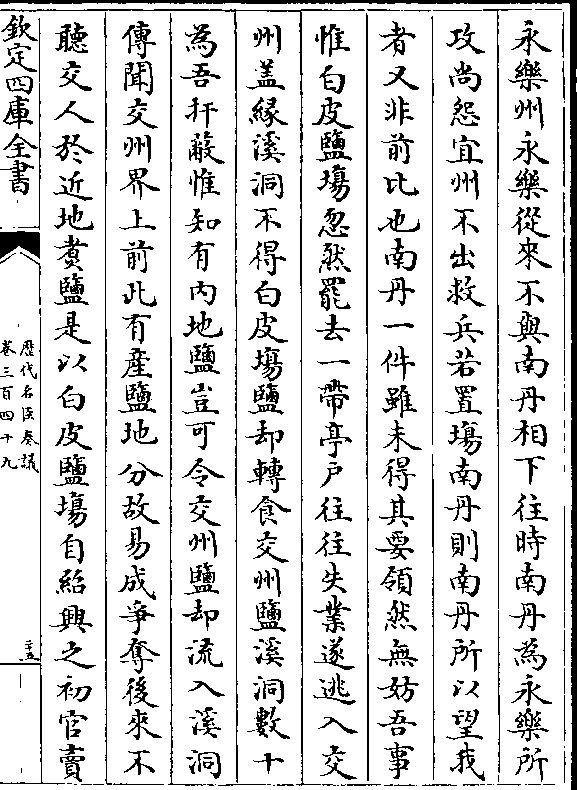 永樂州永樂從來不與南丹相下往時南丹為永樂所
攻尚怨宜州不出救兵若置塲南丹則南丹所以望我
者又非前比也南丹一件雖未得其要領然無妨吾事
惟白皮鹽塲忽然罷去一帶亭户往往失業遂逃入交
州盖緣溪洞不得白皮塲鹽却轉食交州鹽溪洞數十
為吾扞蔽惟知有内地鹽豈可令交州鹽却流入溪洞
傳聞交州界上前此有産鹽地分故易成爭奪後來不
聽交人於近地煑鹽是以白皮鹽塲自紹興之初官賣
欽定四庫全書
歷代名臣奏議
卷三百四十九
二十五